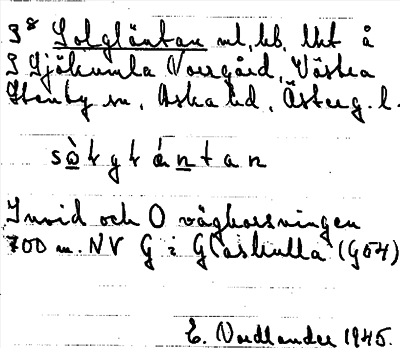 Solgläntan ul, hb. lht å
Sjökumla Norrgård, Västra
Stenby sn, Aska hd, Österg. l.
Invid och O vägkorsningen
700 m. NV G i Glaskulla (G54)
E. Nordlander 1945.